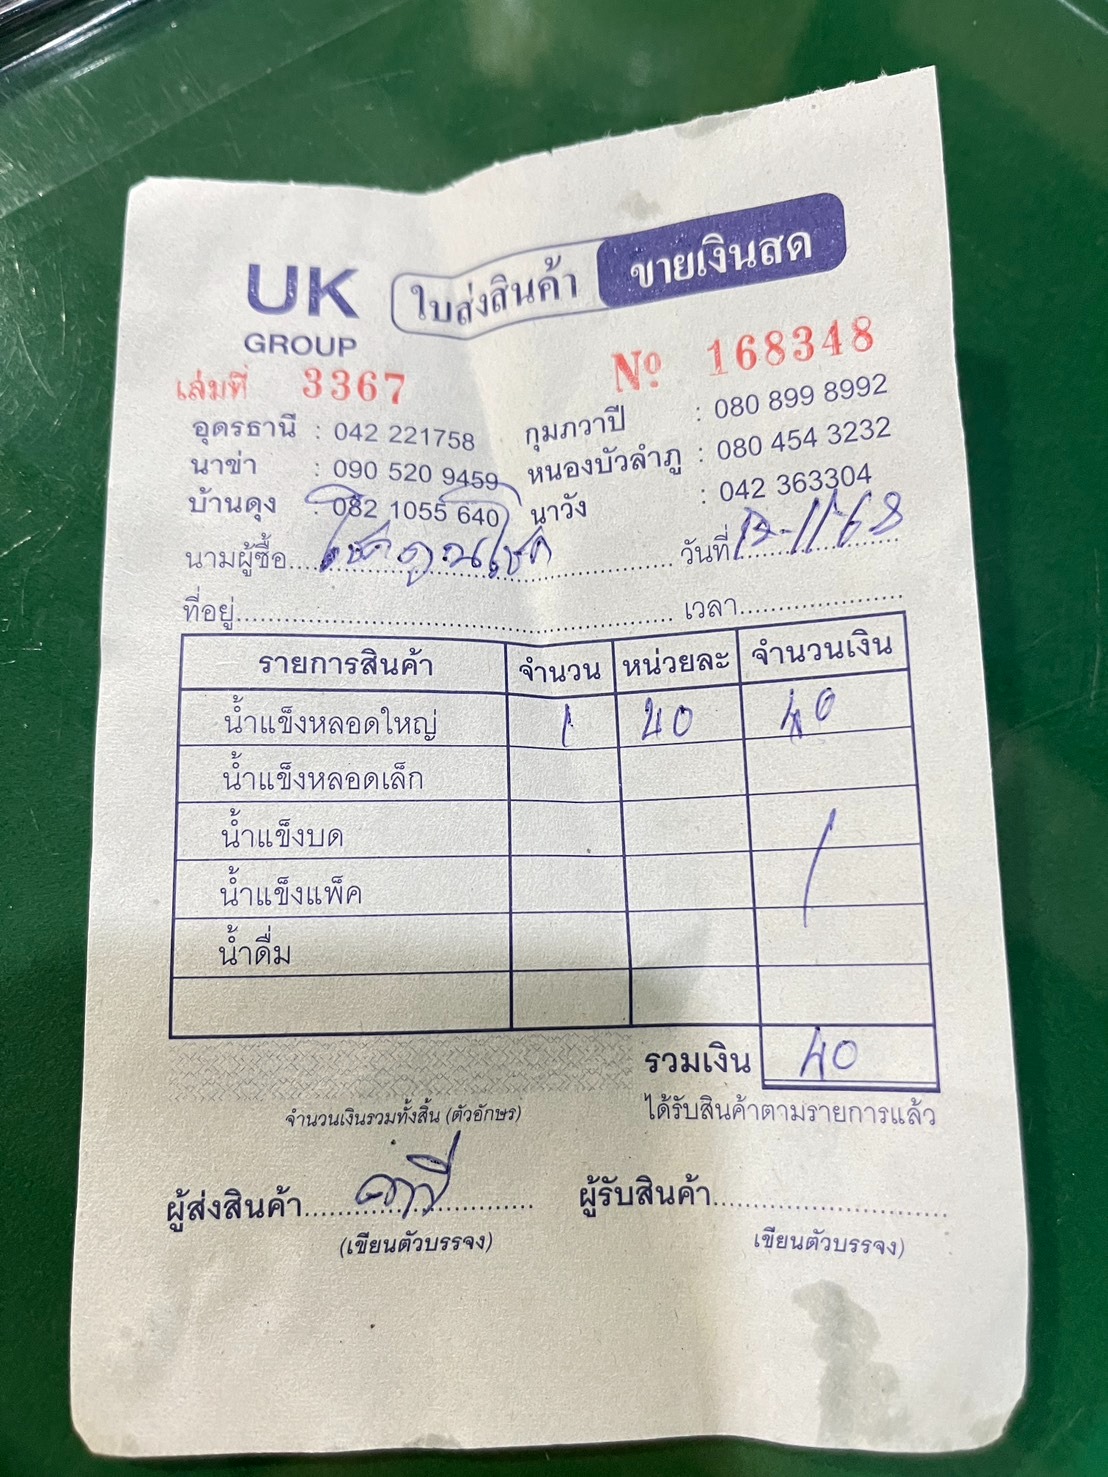 UK
GROUP
ใบส่งสินค้า ขายเงินสด
เล่มที่ 3367 № 168348
อุดรธานี : 042 221758 กุมภวาปี : 080 899 8992
นาข่า : 090 520 9459 หนองบัวลำภู : 080 454 3232
บ้านดุง : 082 1055 640 นาวัง : 042 363304
นามผู้ซื้อ โชคคูณโชค วันที่ -11-68
ที่อยู่ เวลา
รายการสินค้า จำนวน หน่วยละ จำนวนเงิน
น้ำแข็งหลอดใหญ่ 1 40 40
น้ำแข็งหลอดเล็ก
น้ำแข็งบด
น้ำแข็งแพ็ค
น้ำดื่ม
รวมเงิน 40
จำนวนเงินรวมทั้งสิ้น (ตัวอักษร) ได้รับสินค้าตามรายการแล้ว
ผู้ส่งสินค้า ผู้รับสินค้า
(เขียนตัวบรรจง) เขียนตัวบรรจง)